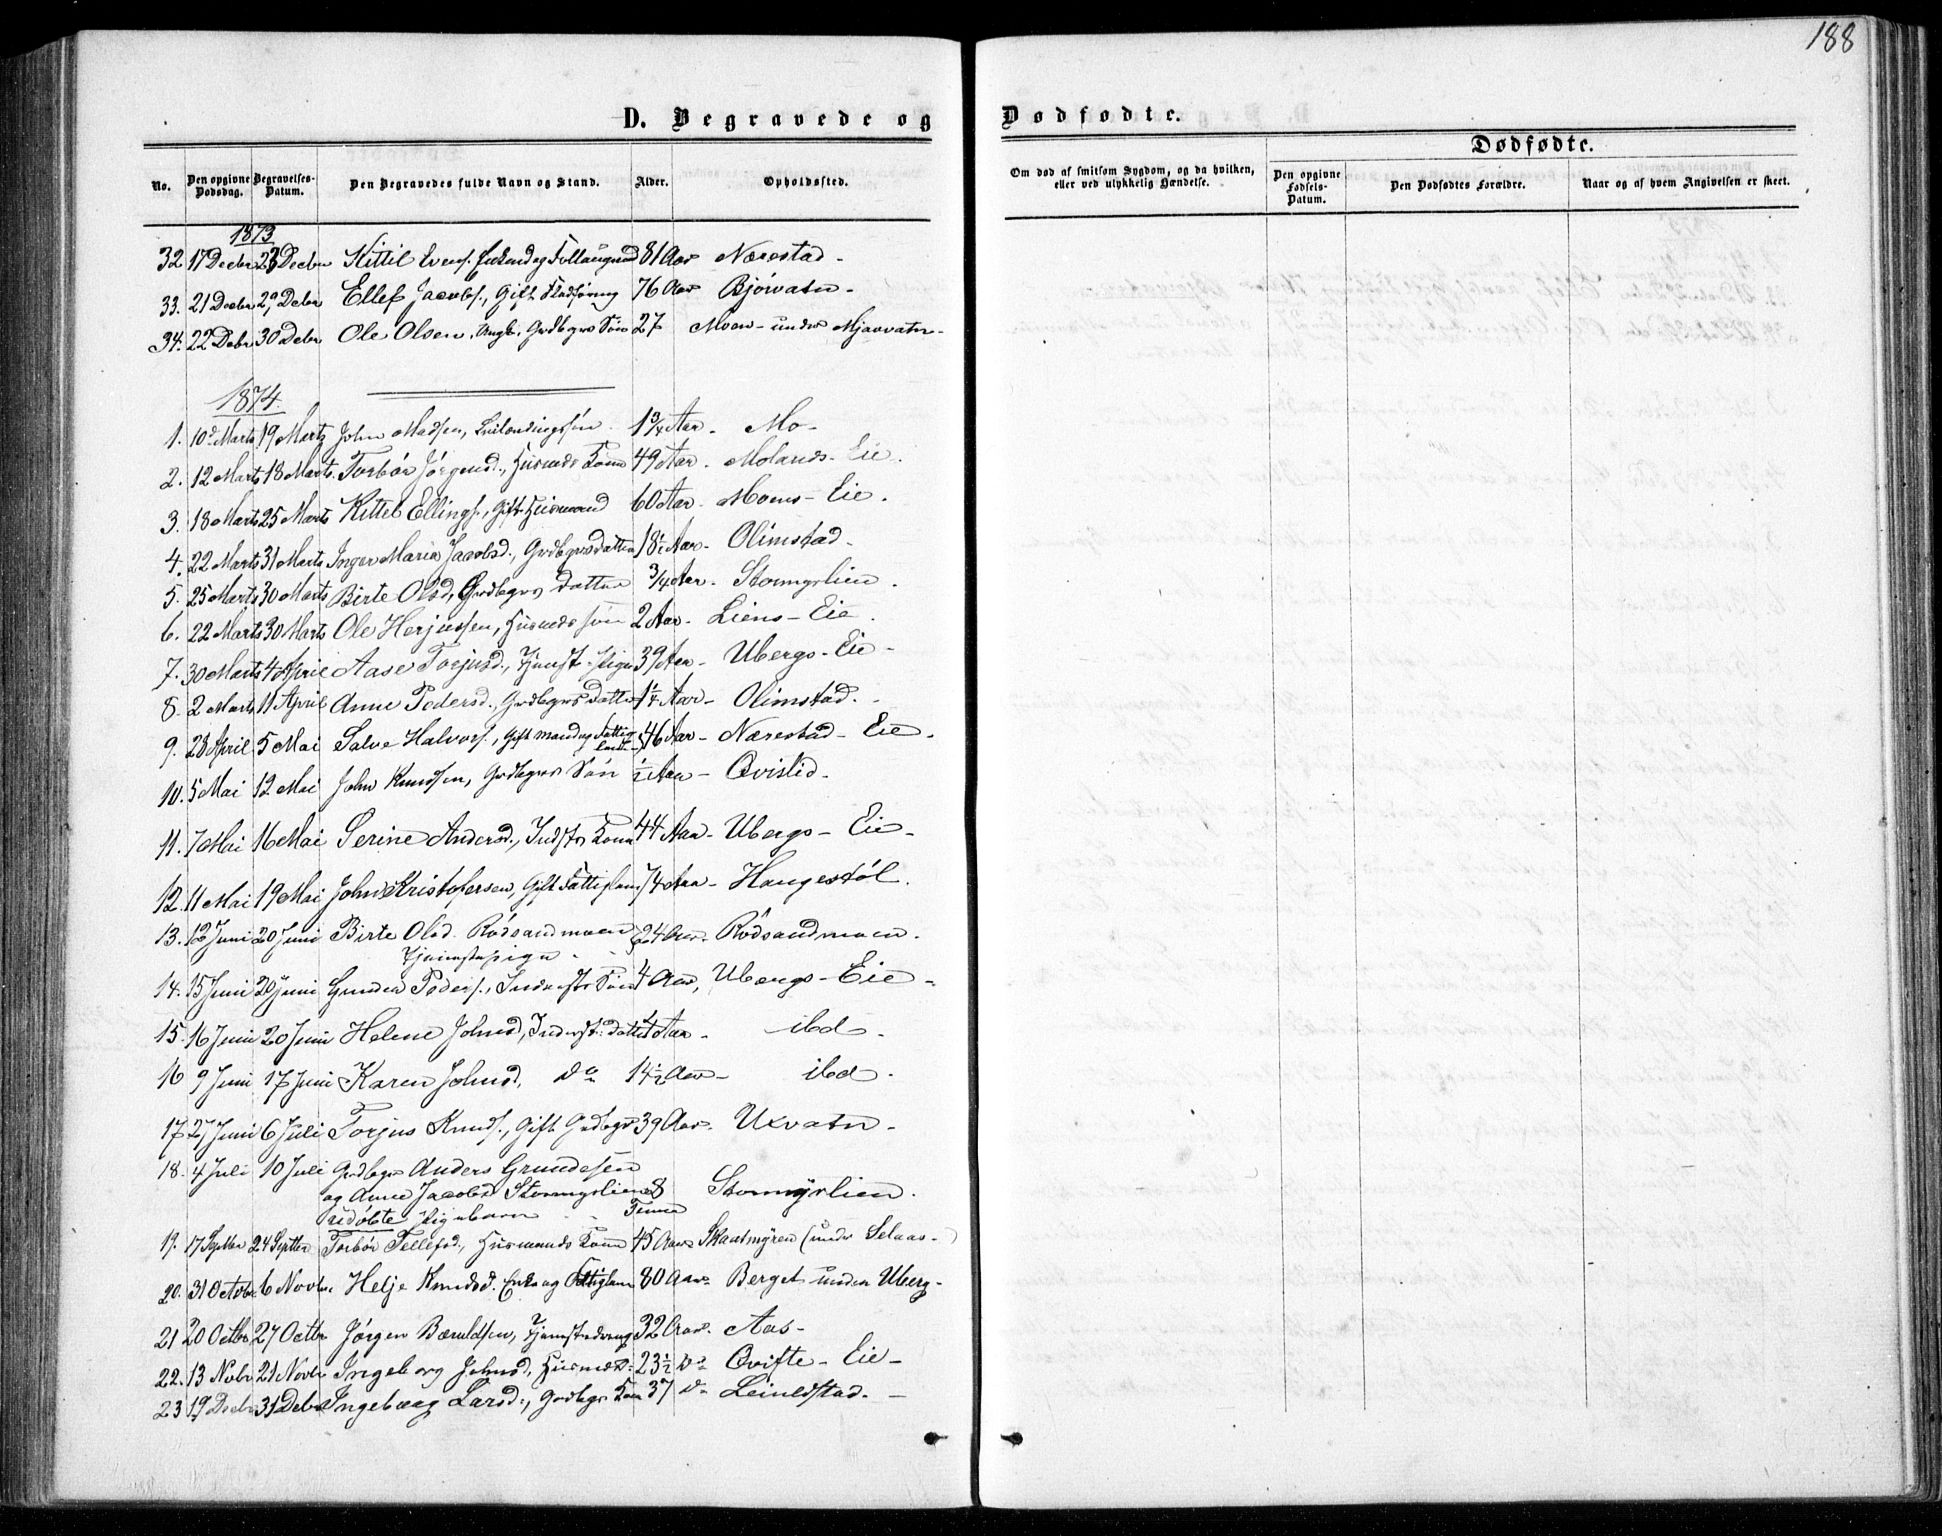 188
D. Begravede og Dødfødte.
No. Den opgivne Dødsdag. Begravelses-Datum. Den Begravedes fulde Navn og Stand. Alder. Opholdssted. Om død af smitsom Sygdom, og da hvilken, eller ved ulykkelig Hændelse. Dødfødte. Den opgivne Fødsels-Datum. Den Dødfødtes Forældre. Naar og af hvem Angivelsen er skeet.
1873
32 17 Decbr 23 Decbr Kittil Evens. 81 Aar Nærestad -
33. 21 Decbr 29 Debr Ellef Jacobs., Gift Fladføring 76 Aar Bjørvatn -
34. 22 Debr 30 Debr Ole Olsen, Ungk. Grdbgrs Søn 27 Moen - under Mjaavatn -
1874.
1. 10d Marts 19 Marts John Madsen, 1 3/4 Aar - Mo -
2. 12 Marts 18 Marts. Torbør Jørgensd., Husmds Kone 49 Aar. Molands - Eie.
3. 18 Marts 25 Marts Kittel Ellings., Gift Husmand 60 Aar - Moens - Eie.
4. 22 Marts 31 Marts Inger Maria Jacobsd., Grdbgrs datter 18 1/2 Aar - Olimstad -
5. 25 Marts 30 Marts Birte Olsd, Grdbgrs Datter 3/4 Aar - Stormyrlien.
6. 22 Marts 30 Marts Ole Herjussen, Husmds søn 2 Aar - Liens - Eie.
7. 30 Marts 4 April Aase Torjusd., Tjenst. Pige 39 Aar - Ubergs - Eie -
8. 2 Marts 11 April Anne Pedersd., Grdbgrs Datter 1 1/4 Aar - Olimstad. -
9. 28 April 5 Mai Salve Halvors., Gift mand og Fattig lem 46 Aar - Nærestad - Eie.
10. 5 Mai 12 Mai John Knudsen, Grdbgrs Søn 1/2 Aar - Qvislid -
11. 7 Mai 16 Mai Serine Andersd., Indsts Kone 44 Aar - Ubergs - Eie -
12. 11 Mai 19 Mai John Kristofersen, Gift Fattiglem 74 Aar - Haugestøl.
13. 12 Juni 20 Juni Birte Olsd. Rødsandmoen 24 Aar. Rødsandmoen.
Tjenestepige -
14. 15 Juni 20 Juni Gunder Peders., Inderst Søn 4 Aar, Ubergs - Eie -
15. 16 Juni 20 Juni Helene Johnsd, Inderst: datter Aar - ibd -
16 9 Juni 17 Juni Karen Johnsd, do 14 1/2 Aar - ibd.
17 27 Juni 6 Juli Torjus Knuds., Gift Grdbgr 39 Aar. Uxvatn -
18. 4 Juli 10 Juli Grdbgr Anders Grundesen
og Anne Jacobsd Stormyrliens 8 Stormyrlien.
udøbte Pigebarn - Timer
19. 17 Septbr 24 Septbr Torbør Tellefsd., Husmands Kone 45 Aar Skaatmyren (under Selaas -)
20. 31 Octobr 6 Novbr. Helje Knudsd. Enke og Fattiglem 80 Aar Berget under Uberg -
21 20 Octbr 27 Octbr Jørgen Bæruldsen, Tjenstedreng 32 Aar. Aas -
22. 13 Nvbr 21 Novbr Ingeborg Johnsd, Husmds: 23 1/2 do Qvifte - Eie -
23 19 Decbr 31 Debr Ingeborg Larsd., Grdbgr Kone 37 do Leiulfstad. -